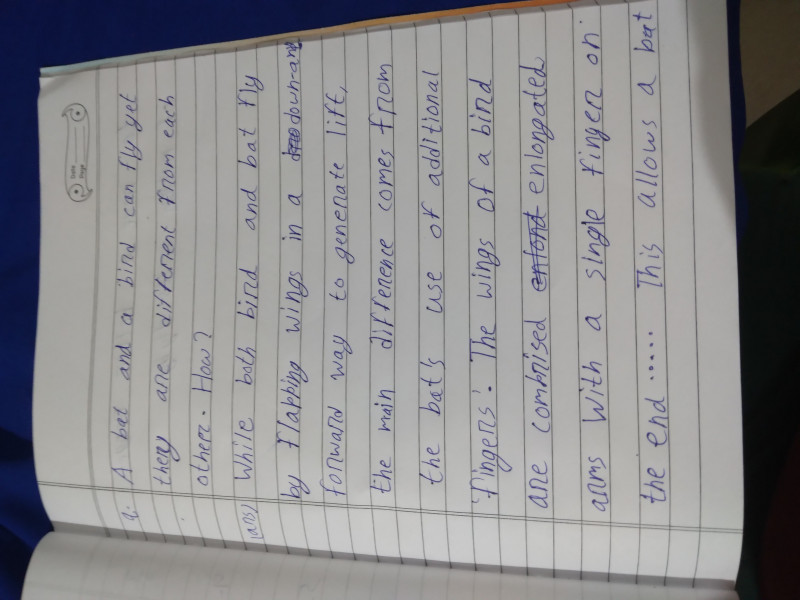 Date
Page
Q. A bat and a bird can fly yet
they are different from each
other. How?
(ans) While both bird and bat fly
by flapping wings in a down-and
forward way to generate lift,
the main difference comes from
the bat's use of additional
'fingers'. The wings of a bird
are combrised enlongated
arms with a single finger on
the end ..... This allows a bat